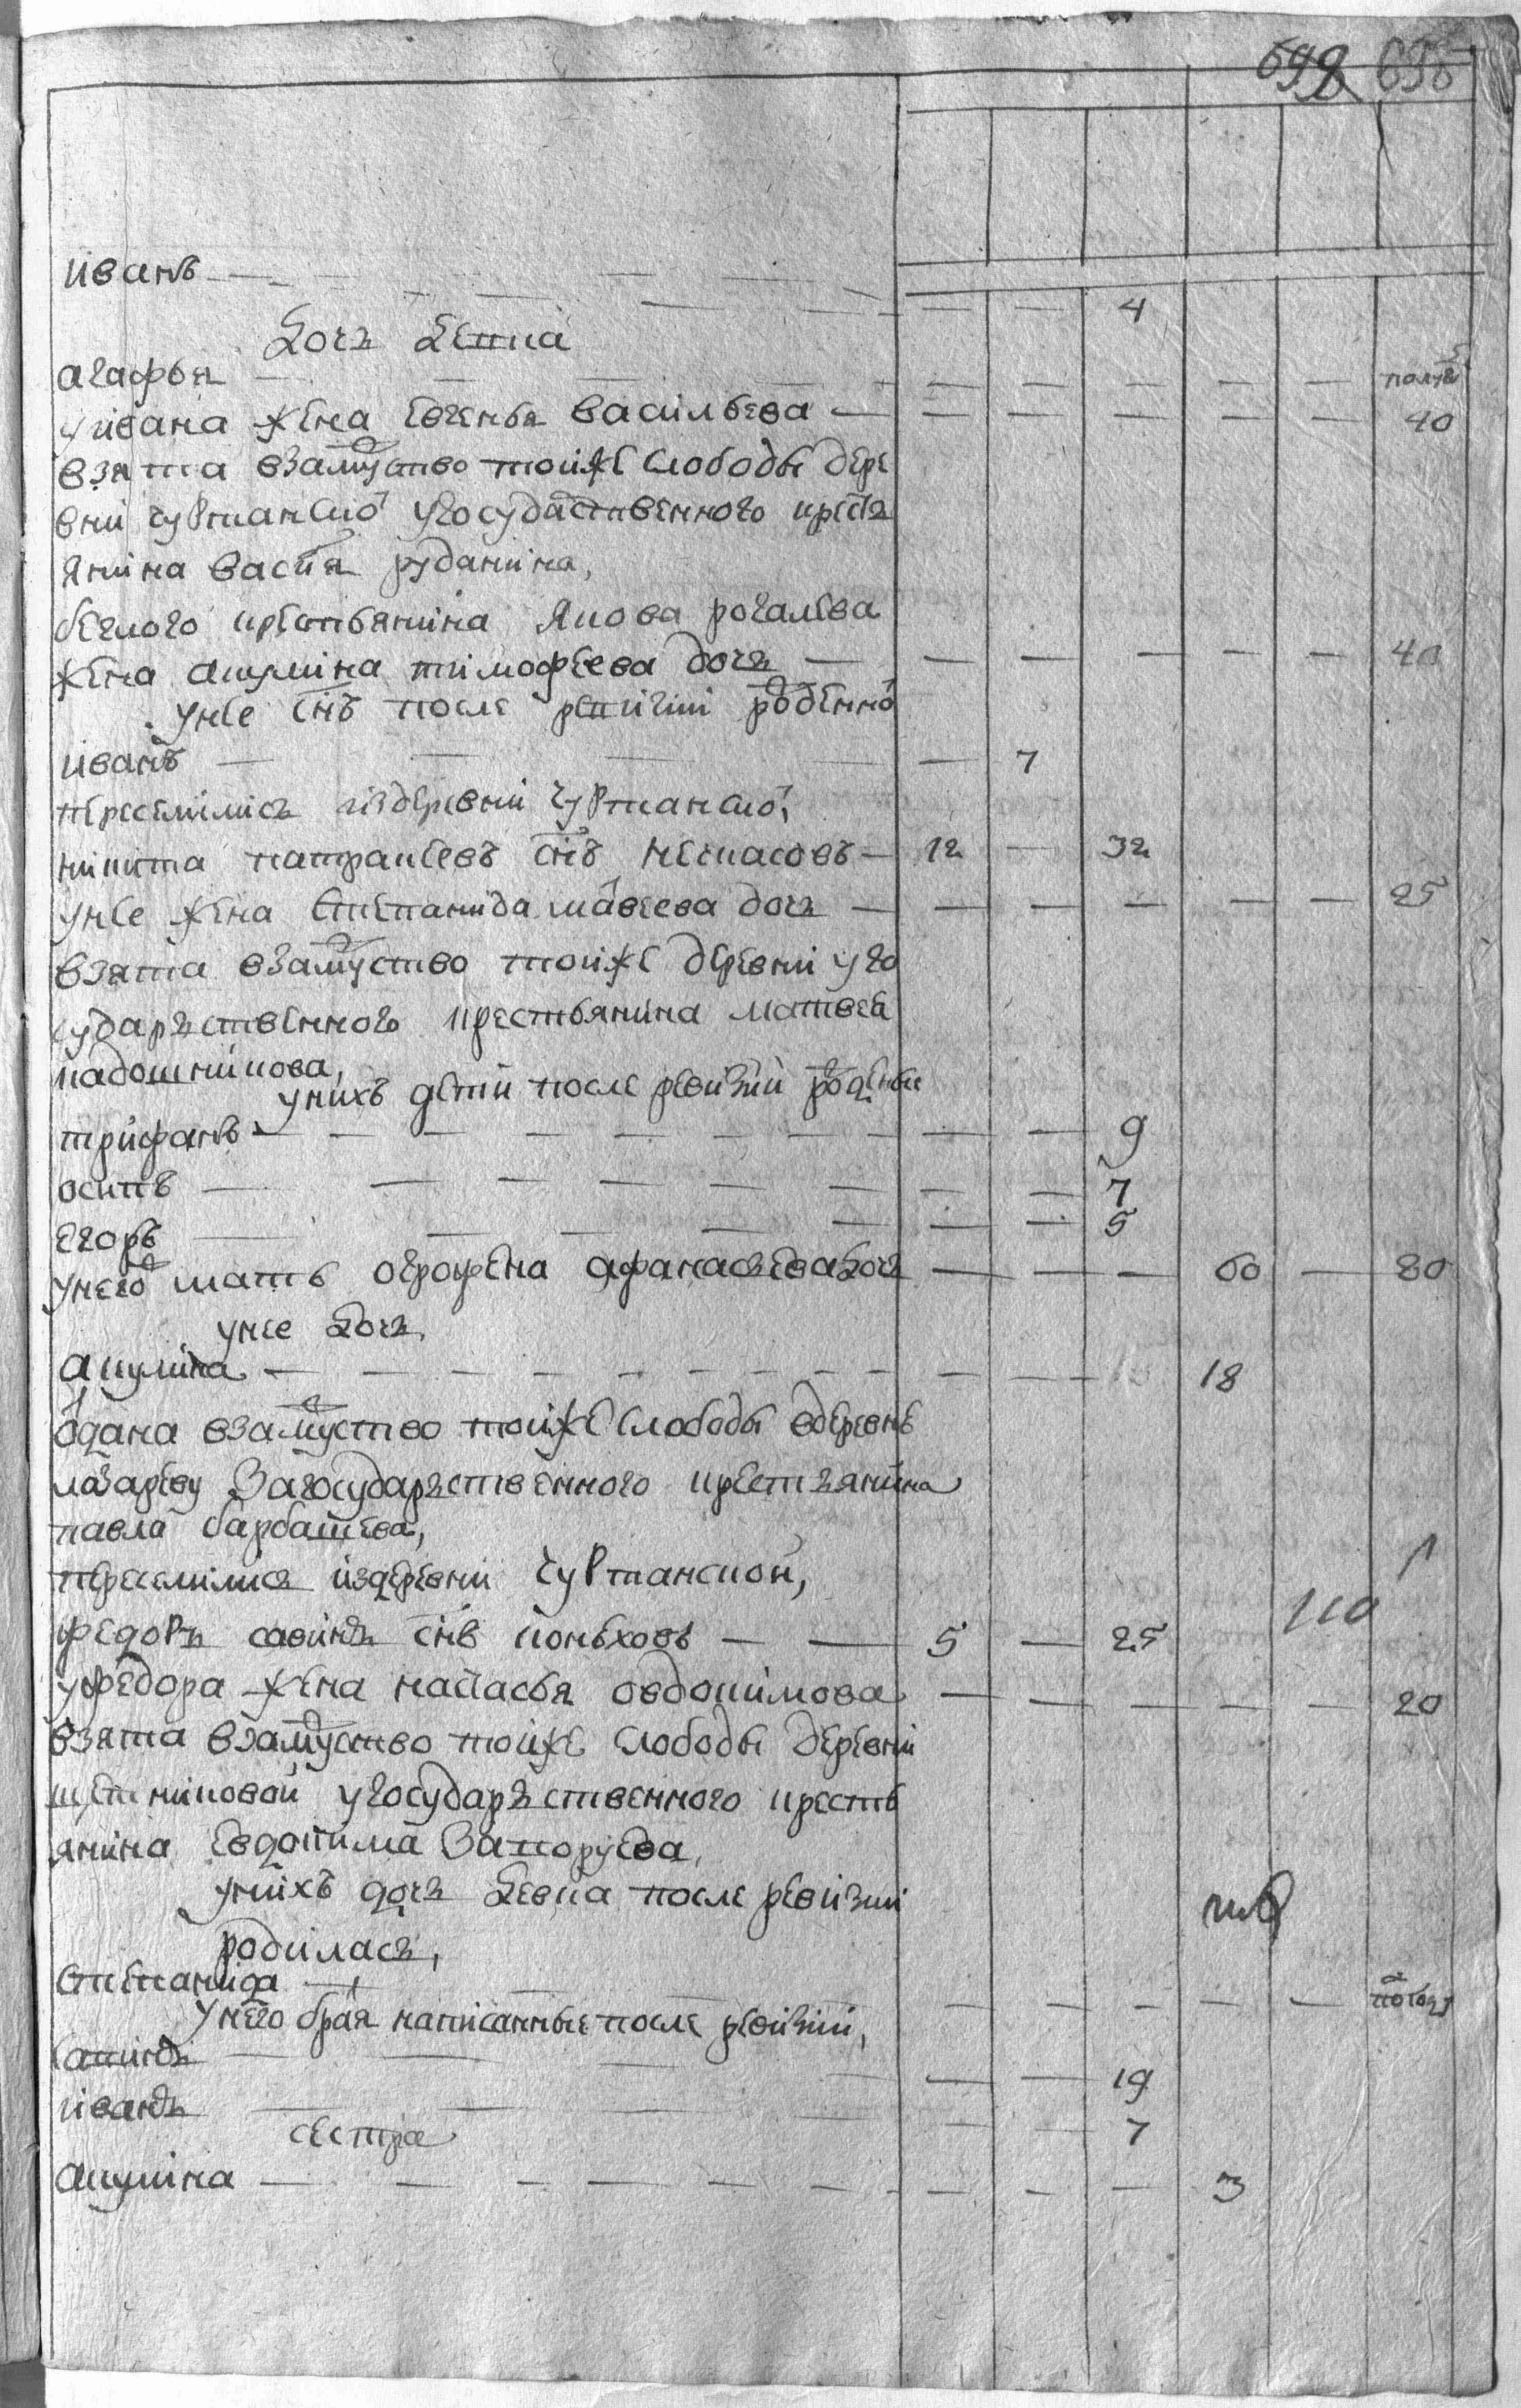 698 698
иванъ — — — 4
дочь девка
агафья — — — полуг
у ивана жена евгенья васильева — 40
взята взамуство тойже слободы дере
вни чуртанской угосударственного крестъ
янина василья руданина,
беглого крестьянина якова рогалева
жена акулина тимофеева дочь — 40
унее снъ после ревизии рожденной
иванъ — 7
переселились издеревни чуртанской,
никита патракеевъ снъ некласовъ — 12 — 32
унее жена степанида матвеева дочь — 25
взята взамуство тойже деревни уго
сударъственного крестьянина матвея
ладошникова,
унихъ дети после ревизии рожденые
трифанъ — 9
осипъ — 7
егоръ — 5
унего мать огрофена афанасьева дочь — 60 — 80
унее дочь,
акулина — 18
отдана взамуство тойже слободы вдеревне
лазареву загосударъственного крестъянина
павла барбашева,
переселился издеревни чуртанской,
федоръ савинъ снъ коньховъ — 5 — 25
уфедора жена настасья овдокимова — 20
взята взамуство тойже слободы деревни
щетниковой угосударъственного кресть
янина евдокима запоруева,
унихъ дочь девка после ревизии
родилась,
степанида —
унего братья написанные после ревизии,
иванъ — 7
19
сестра
акулина — 3